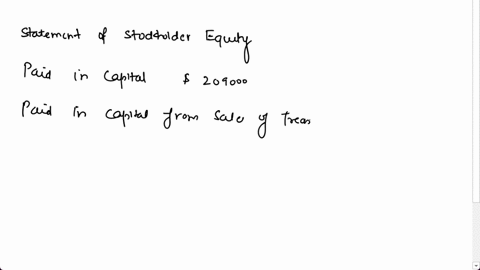 Statement of Stockholder Equity
Paid in Capital $ 209000
Paid In Capital from Sale of Treas